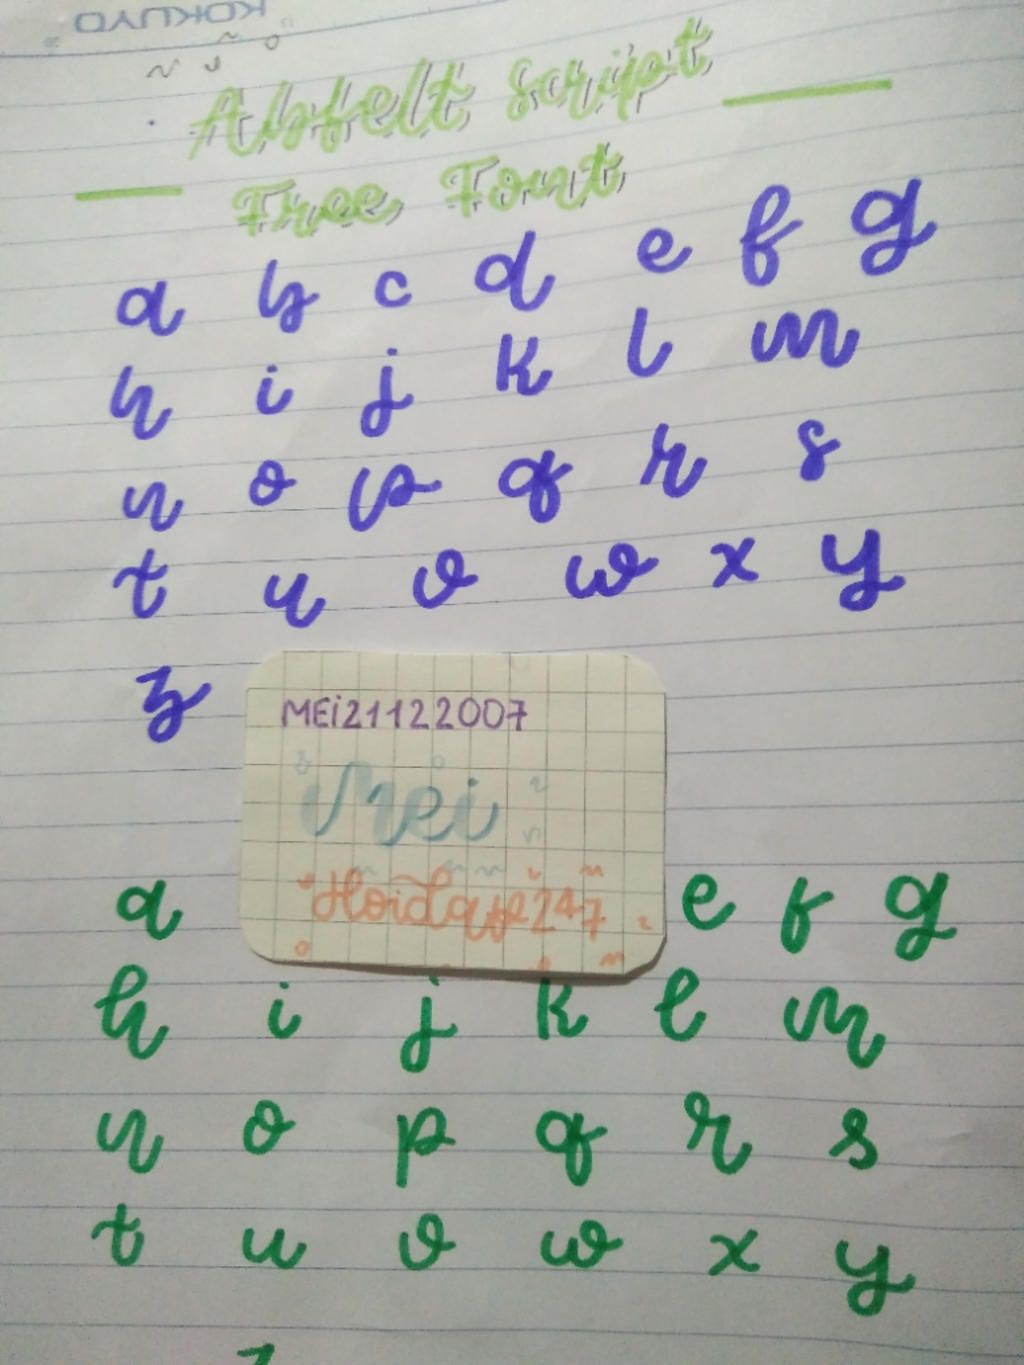 KOKUYO
Abfelt script
Free Font
a b c d e f g
h i j k l m
n o p q r s
t u v w x y
z
MEi21122007
Mei
Hoidap247
a e f g
h i j k l m
n o p q r s
t u v w x y
z